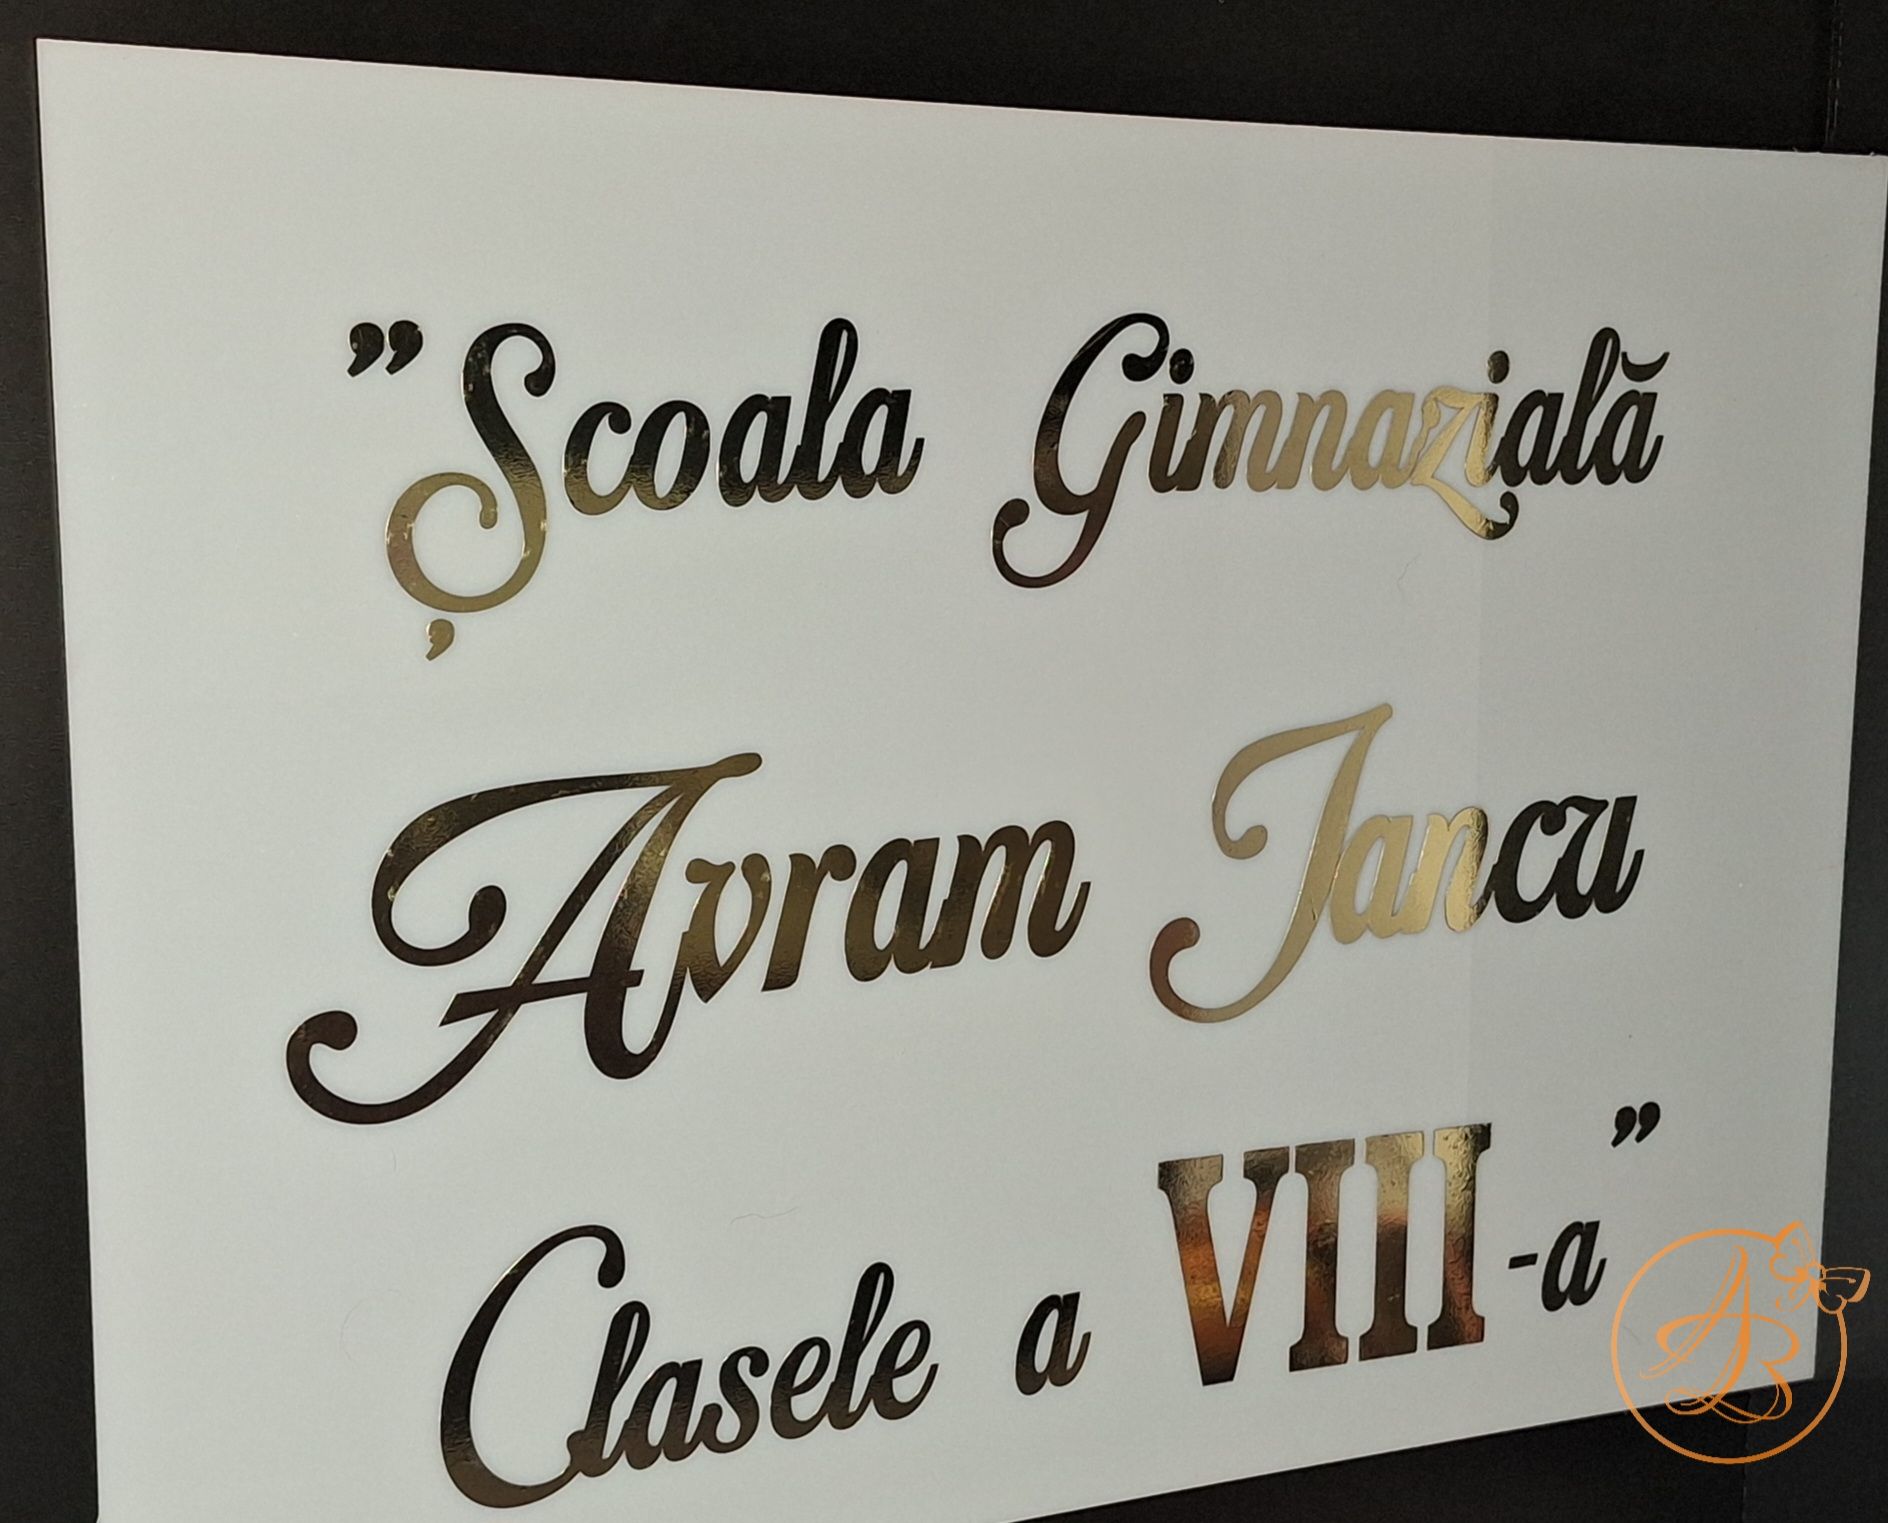 ”Școala Gimnazială
Avram Iancu
Clasele a VIII-a”
AB